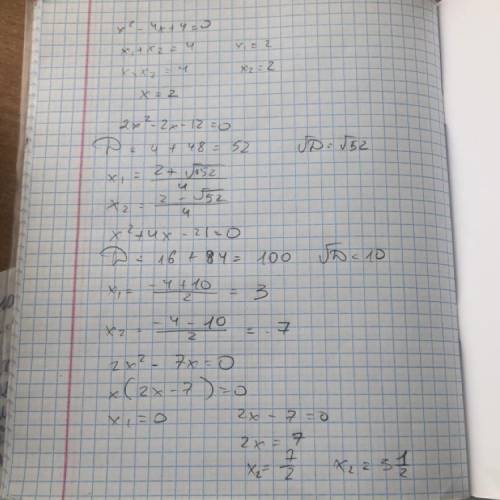 x² - 4x + 4 = 0
x₁ + x₂ = 4 x₁ = 2
x₁x₂ = 4 x₂ = 2
x = 2
2x² - 2x - 12 = 0
D = 4 + 48 = 52 √D = √52
x₁ = (2 + √52)/4
x₂ = (2 - √52)/4
x² + 4x - 21 = 0
D = 16 + 84 = 100 √D = 10
x₁ = (-4 + 10)/2 = 3
x₂ = (-4 - 10)/2 = -7
2x² - 7x = 0
x(2x - 7) = 0
x₁ = 0 2x - 7 = 0
2x = 7
x₂ = 7/2 x₂ = 3 1/2